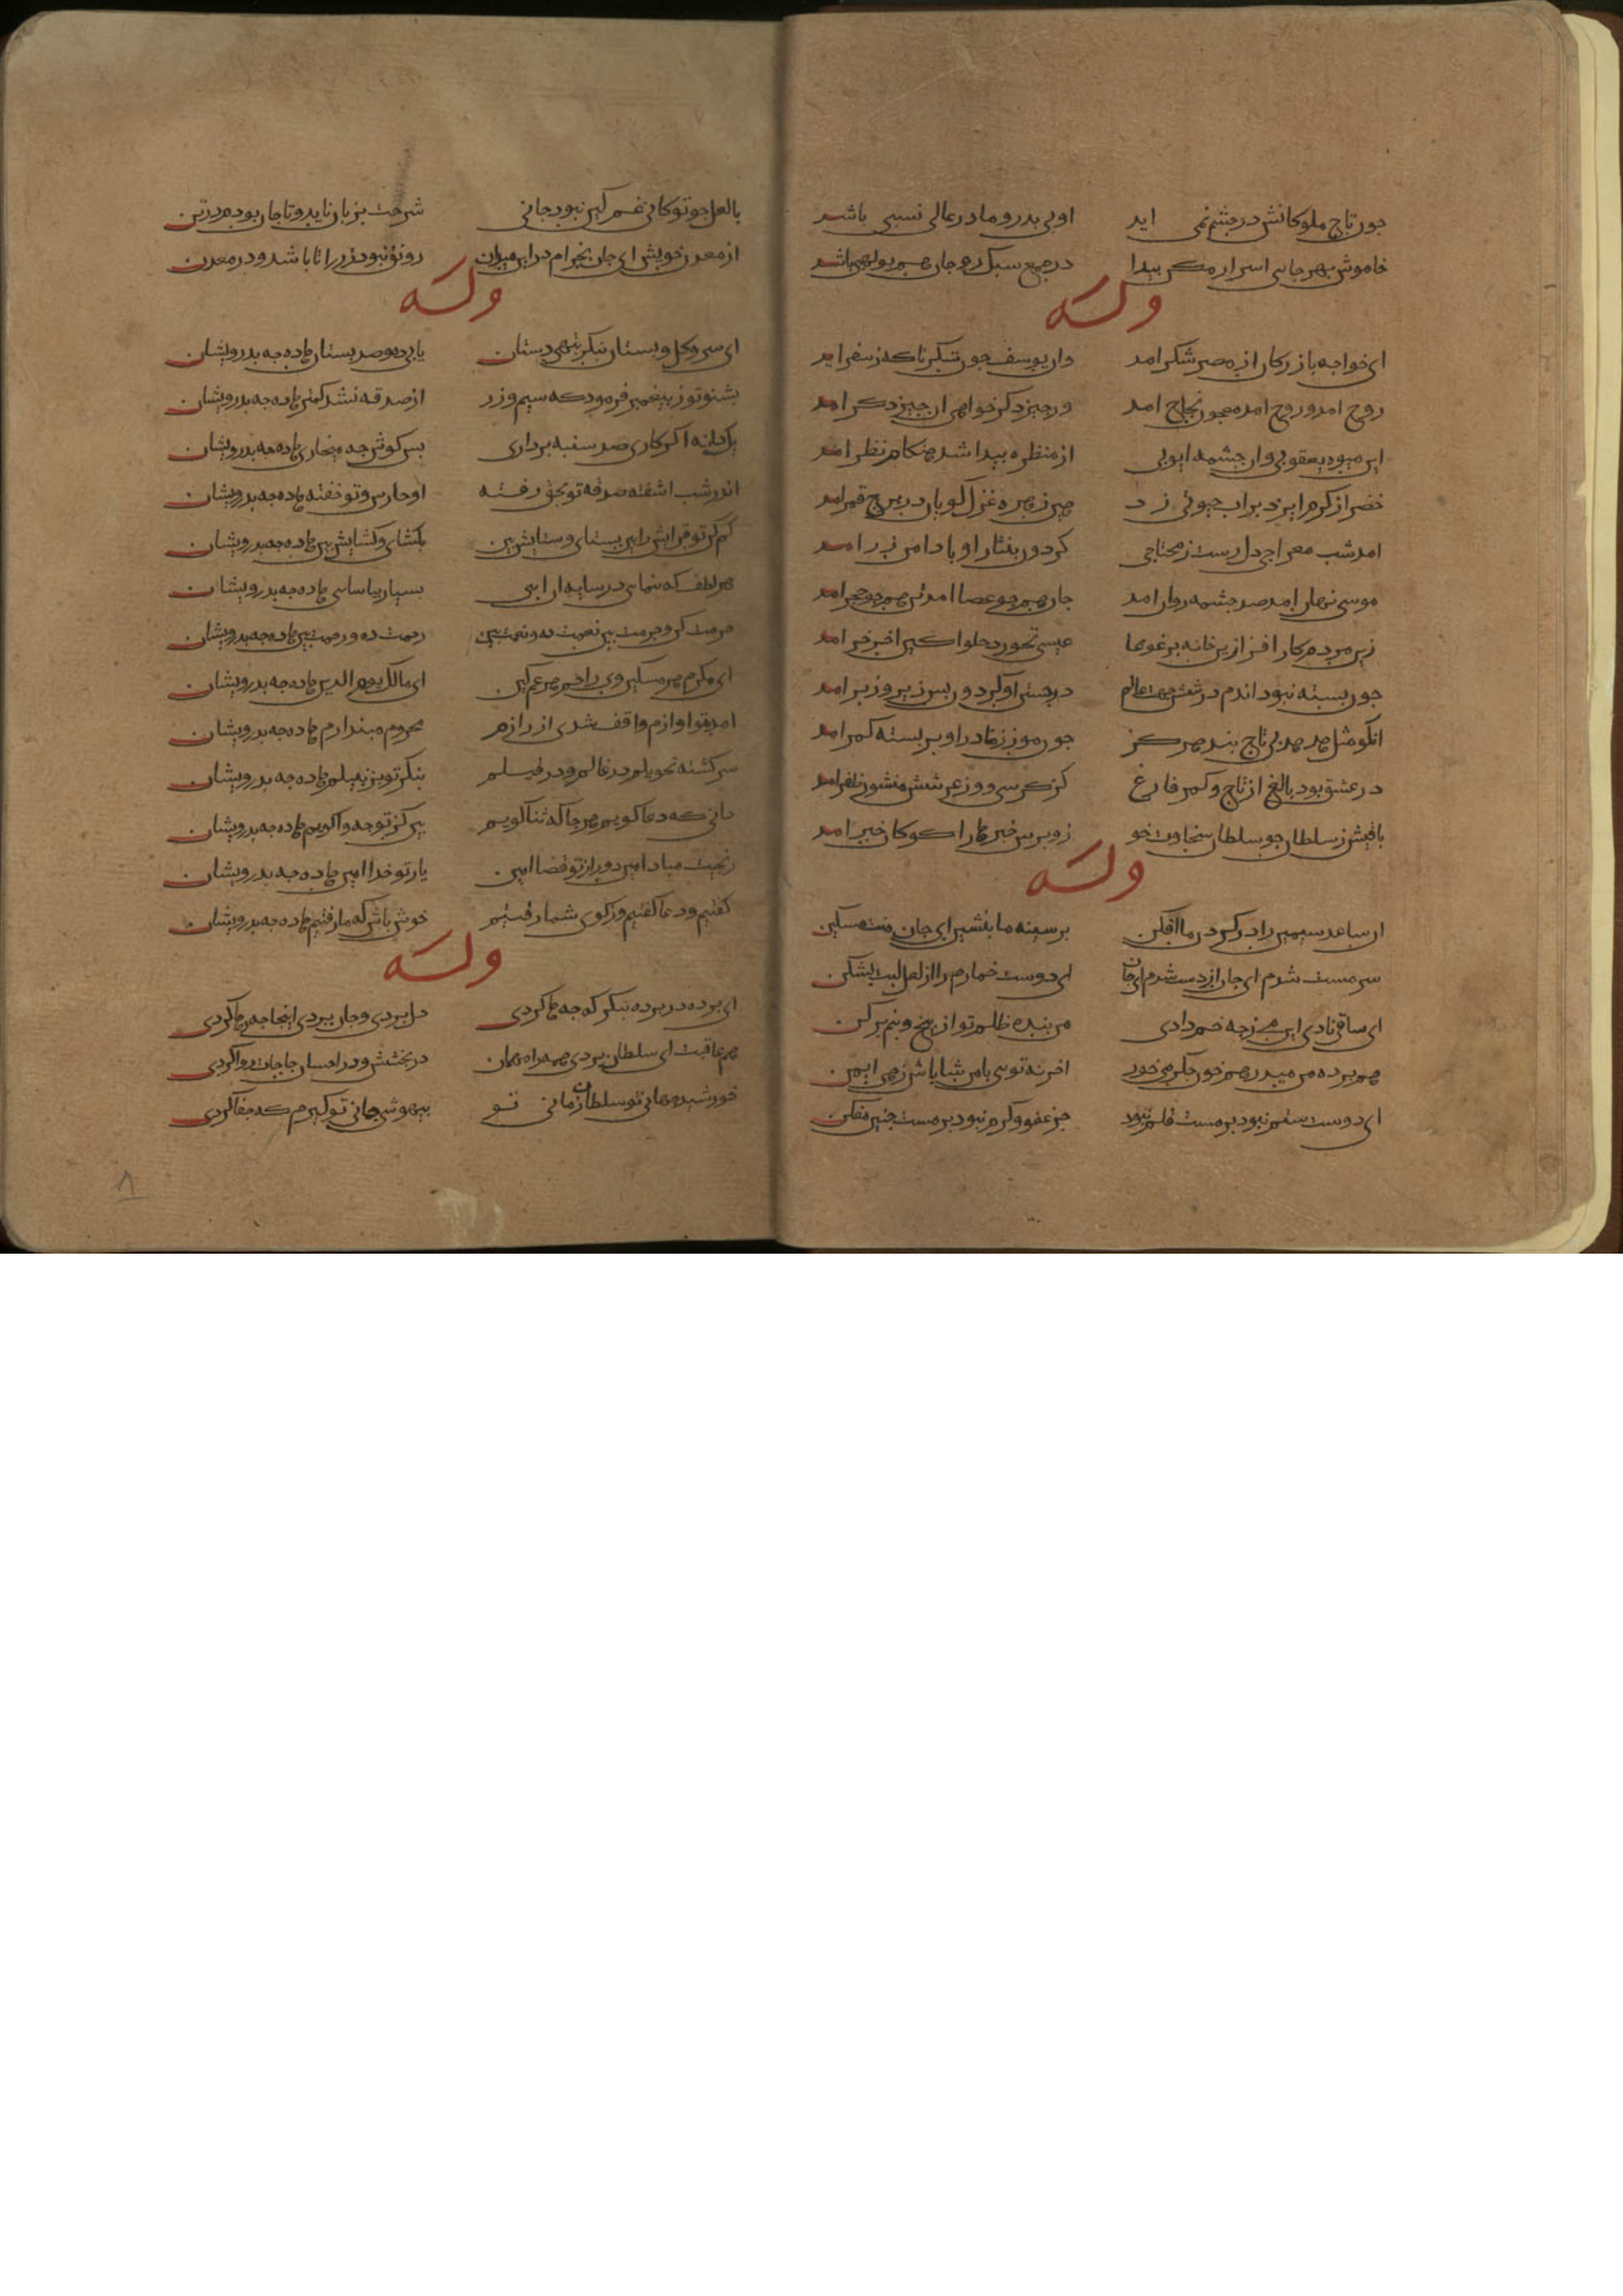 جون تاج ملوکانش در جشم نمی اید اوبی بدر و مادر عالی نسبی باشد
خاموش بهر جایی اسرار مکن بیدا در جمع سبک رو جان هم بولهبی باشد
وله
ای خواجه بازرکان از مصر شکر امد وان یوسف جون شکر ناکه ز سفر امد
روح امد و روح امد معجون نجاح امد ور جیز دکر خواهی ان جیز دکر امد
این میوه یعقوبی وان جشمه ایوبی از منظره بیدا شد هنکام نظر امد
خضر از کرم ایزد بر اب حیوتی زد هین زهره غزل کویان در برج قمر امد
امد شب معراجی دل رست ز محتاجی کردون بنثار او با دامن زر امد
موسی نهان امد صد جشمه روان امد جان همجو عصا امد تن همجو حجر امد
زین مردم کار افزا زین خانه بر غوغا عیسی نخورد حلوا کین اخر خر امد
جون بسته نبود اندم در شش جهت عالم در جستن او کردون بس زیر و زبر امد
انکو مثل هدهد بی تاج نبد هرکز جون مور ز مادر او بر بسته کمر امد
در عشق بود بالغ از تاج و کمر فارغ کز کرسی و وز عرشش منشور ظفر امد
باقیش ز سلطان جو سلطان سخاوت خو زو برس خبرها را کو کان خبر امد
وله
ان ساعد سیمین را در کردن ما افکن بر سینه ما بنشین ای جان منت مسکین
سرمست شدم ای جان از دست شدم ای جان ای دوست خمارم را از لعل لبت بشکن
ای ساقی نادی این می زجه خم دادی من بنده ظلم تو از بیخ و بنم برکن
هم برده من میدر هم خون جکر می خور اخر نه توی با من شاباش زهی ای من
ای دوست ستم نبود بر مست قلم نبود جز عفو و کرم نبود بر مست جنین مفکن
با لعل جو تو کانی غمکین نبود جانی شرحت بزبان ناید و تا جان بود در تن
از معدن خویش ای جان بخرام درین میدان رونق نبود زر را تا باشد و در معدن
وله
ای سرو و کل و بستان بنکر بتهی دستان یابی ده و صد بستان هاده جه بدرویشان
بشنو تو ز بیغمبر فرمود که سیم و زر از صدقه نشد کمتر هاده جه بدرویشان
یک دانه اکر کاری صد سنبله برداری بس کوش جه میخاری هاده جه بدرویشان
اندر شب اشفته صدقه تو بحق رفته او حارس و تو خفته هاده جه بدرویشان
کم کن تو فزایش بین بستای و ستایش بین بکشای و کشایش بین هاده جه بدرویشان
هر لطف که بنمایی در سایه ان ایی بسیار بیاسایی هاده جه بدرویشان
حرمت کن و حرمت بین نعمت ده و نعمت بین رحمت ده و رحمت بین هاده جه بدرویشان
ای مکرم هر مسکین وی راحم هر غمکین ای مالک یوم الدین هاده جه بدرویشان
امد بتو اوازم واقف شدی از رازم محروم مبندارم هاده جه بدرویشان
سرکشته تحویلم در قالم و در قیلم بنکر تو بزنبیلم هاده جه بدرویشان
دانی که دعا کویم هر جا که ثنا کویم بس کز تو جه واکویم هاده جه بدرویشان
رنجیت مبادا امین دور از تو قضا امین یار تو خدا امین هاده جه بدرویشان
کفتیم و دعا کفتیم وز کوی شما رفتیم خوش باش که ما رفتیم هاده جه بدرویشان
وله
ای برده در برده بنکر که جه ها کردی دل بردی و جان بردی اینجا جه رها کردی
هم عاقبت ای سلطان بردی همه را مهمان در بخشش و در احسان حاجات روا کردی
خورشید جهانی تو سلطان زمانی تو بیهوشی جانی تو کیرم که جفا کردی
۸